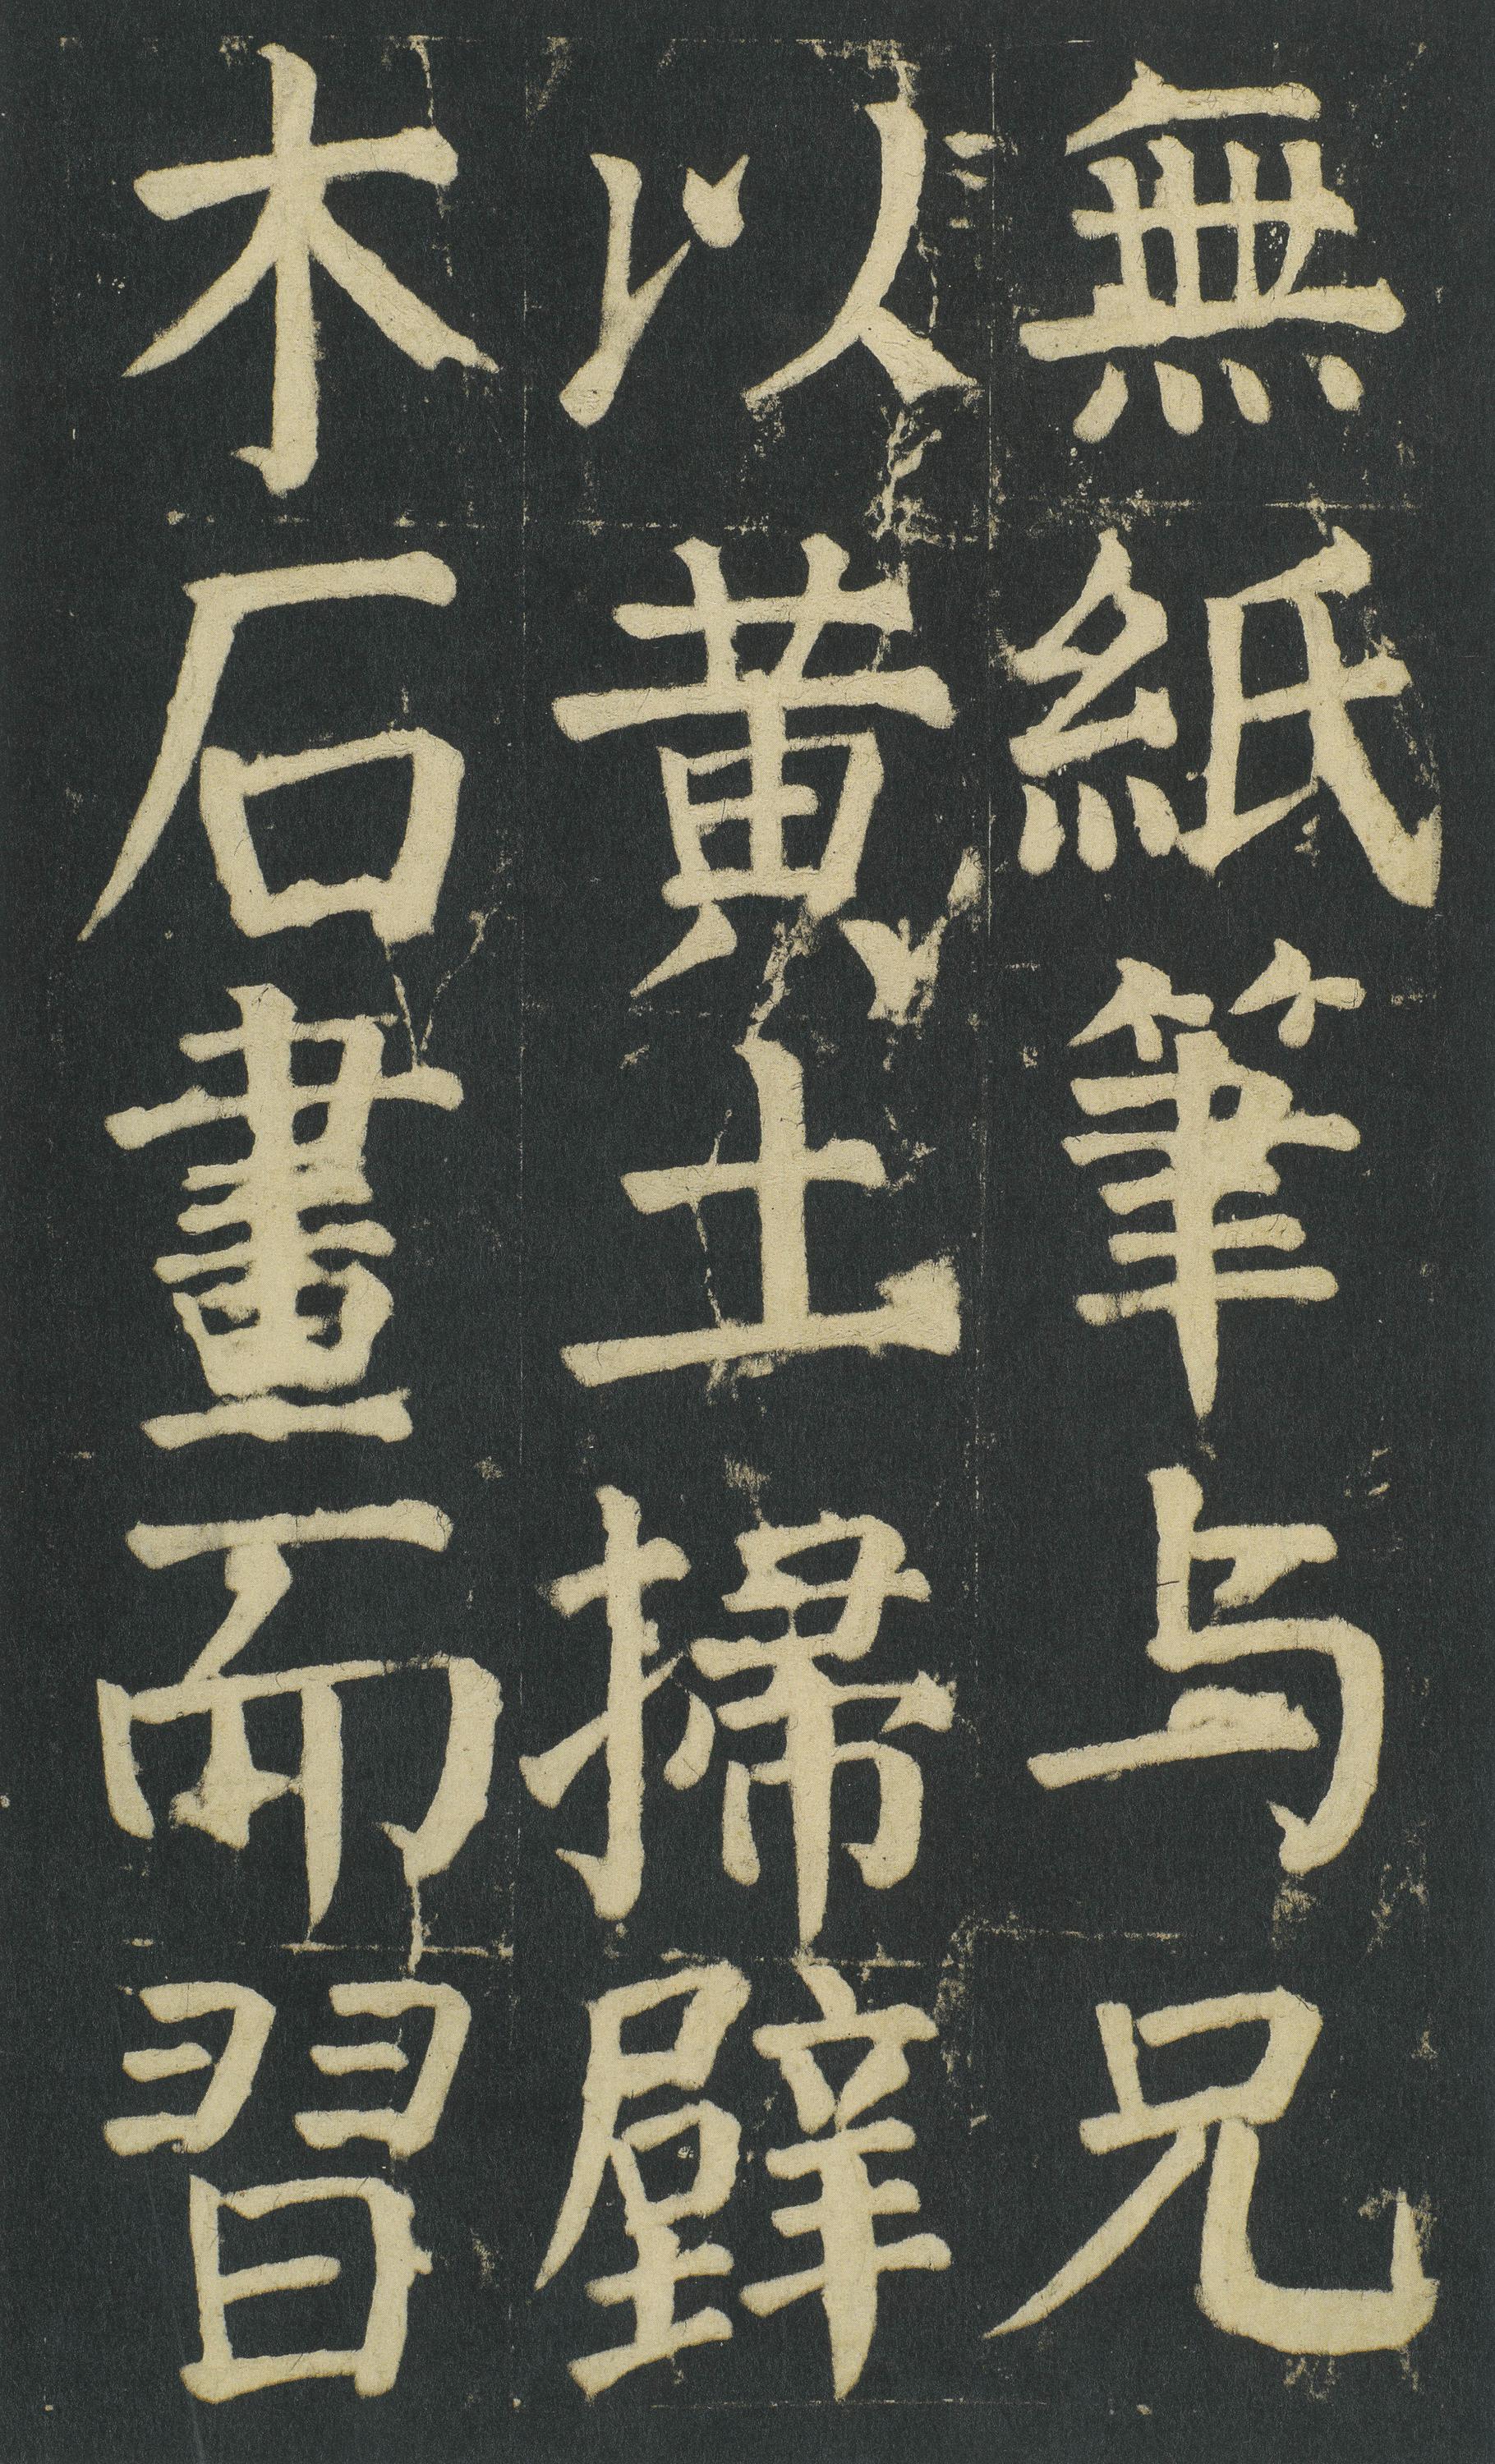 無紙筆与兄
以黄土掃壁
木石畫而習